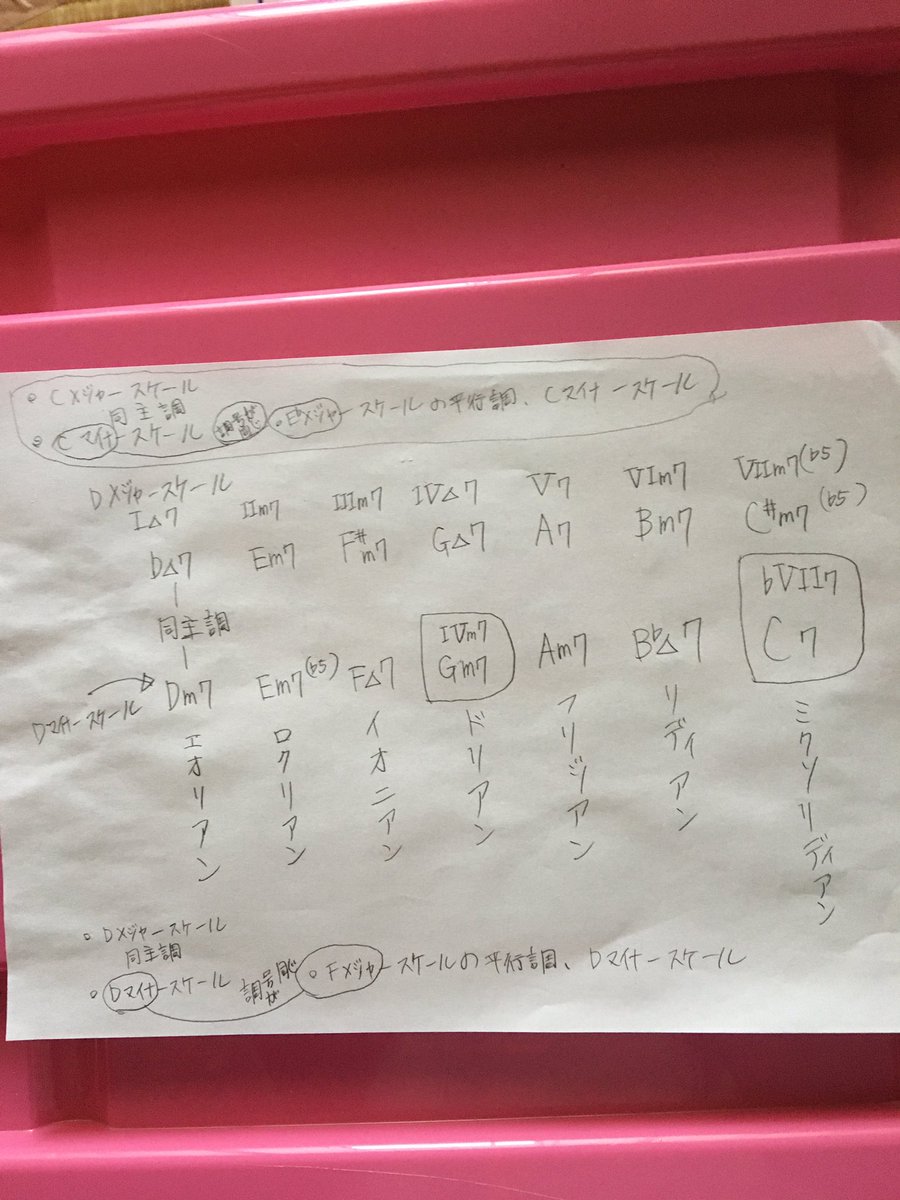 ○ Cメジャースケール
同主調
○ Cマイナースケール 調号が同じ ○E♭メジャースケールの平行調、Cマイナースケール
Dメジャースケール
I△7 IIm7 IIIm7 IV△7 V7 VIm7 VIIm7(♭5)
D△7 Em7 F#m7 G△7 A7 Bm7 C#m7(♭5)
同主調
IVm7 ♭VII7
Dマイナースケール Dm7 Em7(♭5) F△7 Gm7 Am7 B♭△7 C7
エオリアン ロクリアン イオニアン ドリアン フリジアン リディアン ミクソリディアン
○ Dメジャースケール
同主調
○ Dマイナースケール 調号が同じ ○ Fメジャースケールの平行調、Dマイナースケール